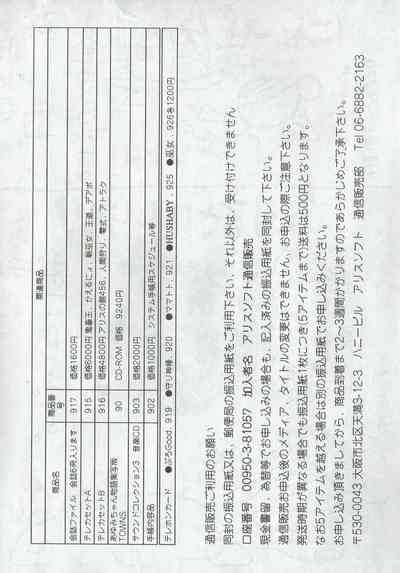 商品名 商品番号 関連商品
会話ファイル 会話6冊入ります 917 価格1600円
テレカセットA 915 価格6000円 鬼畜王、かえるにょ、戦巫女、王道、デアボ
テレカセットB 916 価格4800円 アリスの館456、人間狩り、零式、アトラク
あゆみちゃん物語実写版 TOWNS 90 CD-ROM 価格 9240円
サウンドコレクション3 音楽CD 903 価格2000円
手帳内容品 902 価格1000円 システム手帳用スケジュール等
テレホンカード ●ぷろGood. 919 ●守り神様. 920 ●ママトト. 921 ●HUSHABY. 925 ●巫女. 926各1200円
通信販売ご利用のお願い
同封の振込用紙又は、郵便局の振込用紙をご利用下さい、それ以外は、受け付けできません
口座番号 00950-3-81057 加入者名 アリスソフト通信販売
現金書留、為替等でお申し込みの場合も、記入済みの振込用紙を同封して下さい。
通信販売お申込後のメディア、タイトルの変更はできません、お申込の際ご注意下さい。
発送時期が異なる場合でも振込用紙1枚につき(5アイテムまで)送料は500円となります。
なお5アイテムを越える場合は別の振込用紙でお申し込みください。
お申し込み頂きましてから、商品到着まで2～3週間かかりますのであらかじめご了承下さい。
〒530-0043 大阪市北区天満3-12-3 ハニービル アリスソフト 通信販売部 Tel 06-6882-2163